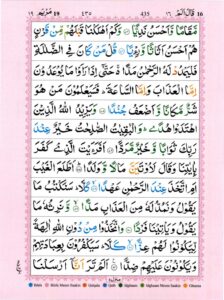 19 مريم ١٩ ٤٣٥ 435 قال الم ١٦ 16
مَّقَامًا وَّاَحْسَنُ نَدِيًّا وَكَمْ اَهْلَكْنَا قَبْلَهُمْ مِّنْ قَرْنٍ
هُمْ اَحْسَنُ اَثَاثًا وَّرِءْيًا قُلْ مَنْ كَانَ فِى الضَّلٰلَةِ
فَلْيَمْدُدْ لَهُ الرَّحْمٰنُ مَدًّا حَتّٰٓى اِذَا رَاَوْا مَا يُوْعَدُوْنَ
اِمَّا الْعَذَابَ وَاِمَّا السَّاعَةَ فَسَيَعْلَمُوْنَ مَنْ هُوَ
شَرٌّ مَّكَانًا وَّاَضْعَفُ جُنْدًا وَيَزِيْدُ اللّٰهُ الَّذِيْنَ
اهْتَدَوْا هُدًى وَالْبٰقِيٰتُ الصّٰلِحٰتُ خَيْرٌ عِنْدَ
رَبِّكَ ثَوَابًا وَّخَيْرٌ مَّرَدًّا اَفَرَءَيْتَ الَّذِيْ كَفَرَ
بِاٰيٰتِنَا وَقَالَ لَاُوْتَيَنَّ مَالًا وَّوَلَدًا اَطَّلَعَ الْغَيْبَ
اَمِ اتَّخَذَ عِنْدَ الرَّحْمٰنِ عَهْدًا كَلَّا سَنَكْتُبُ مَا
يَقُوْلُ وَنَمُدُّ لَهٗ مِنَ الْعَذَابِ مَدًّا وَّنَرِثُهٗ مَا
يَقُوْلُ وَيَاْتِيْنَا فَرْدًا وَاتَّخَذُوْا مِنْ دُوْنِ اللّٰهِ اٰلِهَةً
لِّيَكُوْنُوْا لَهُمْ عِزًّا كَلَّا سَيَكْفُرُوْنَ بِعِبَادَتِهِمْ
وَيَكُوْنُوْنَ عَلَيْهِمْ ضِدًّا اَلَمْ تَرَ اَنَّآ اَرْسَلْنَا